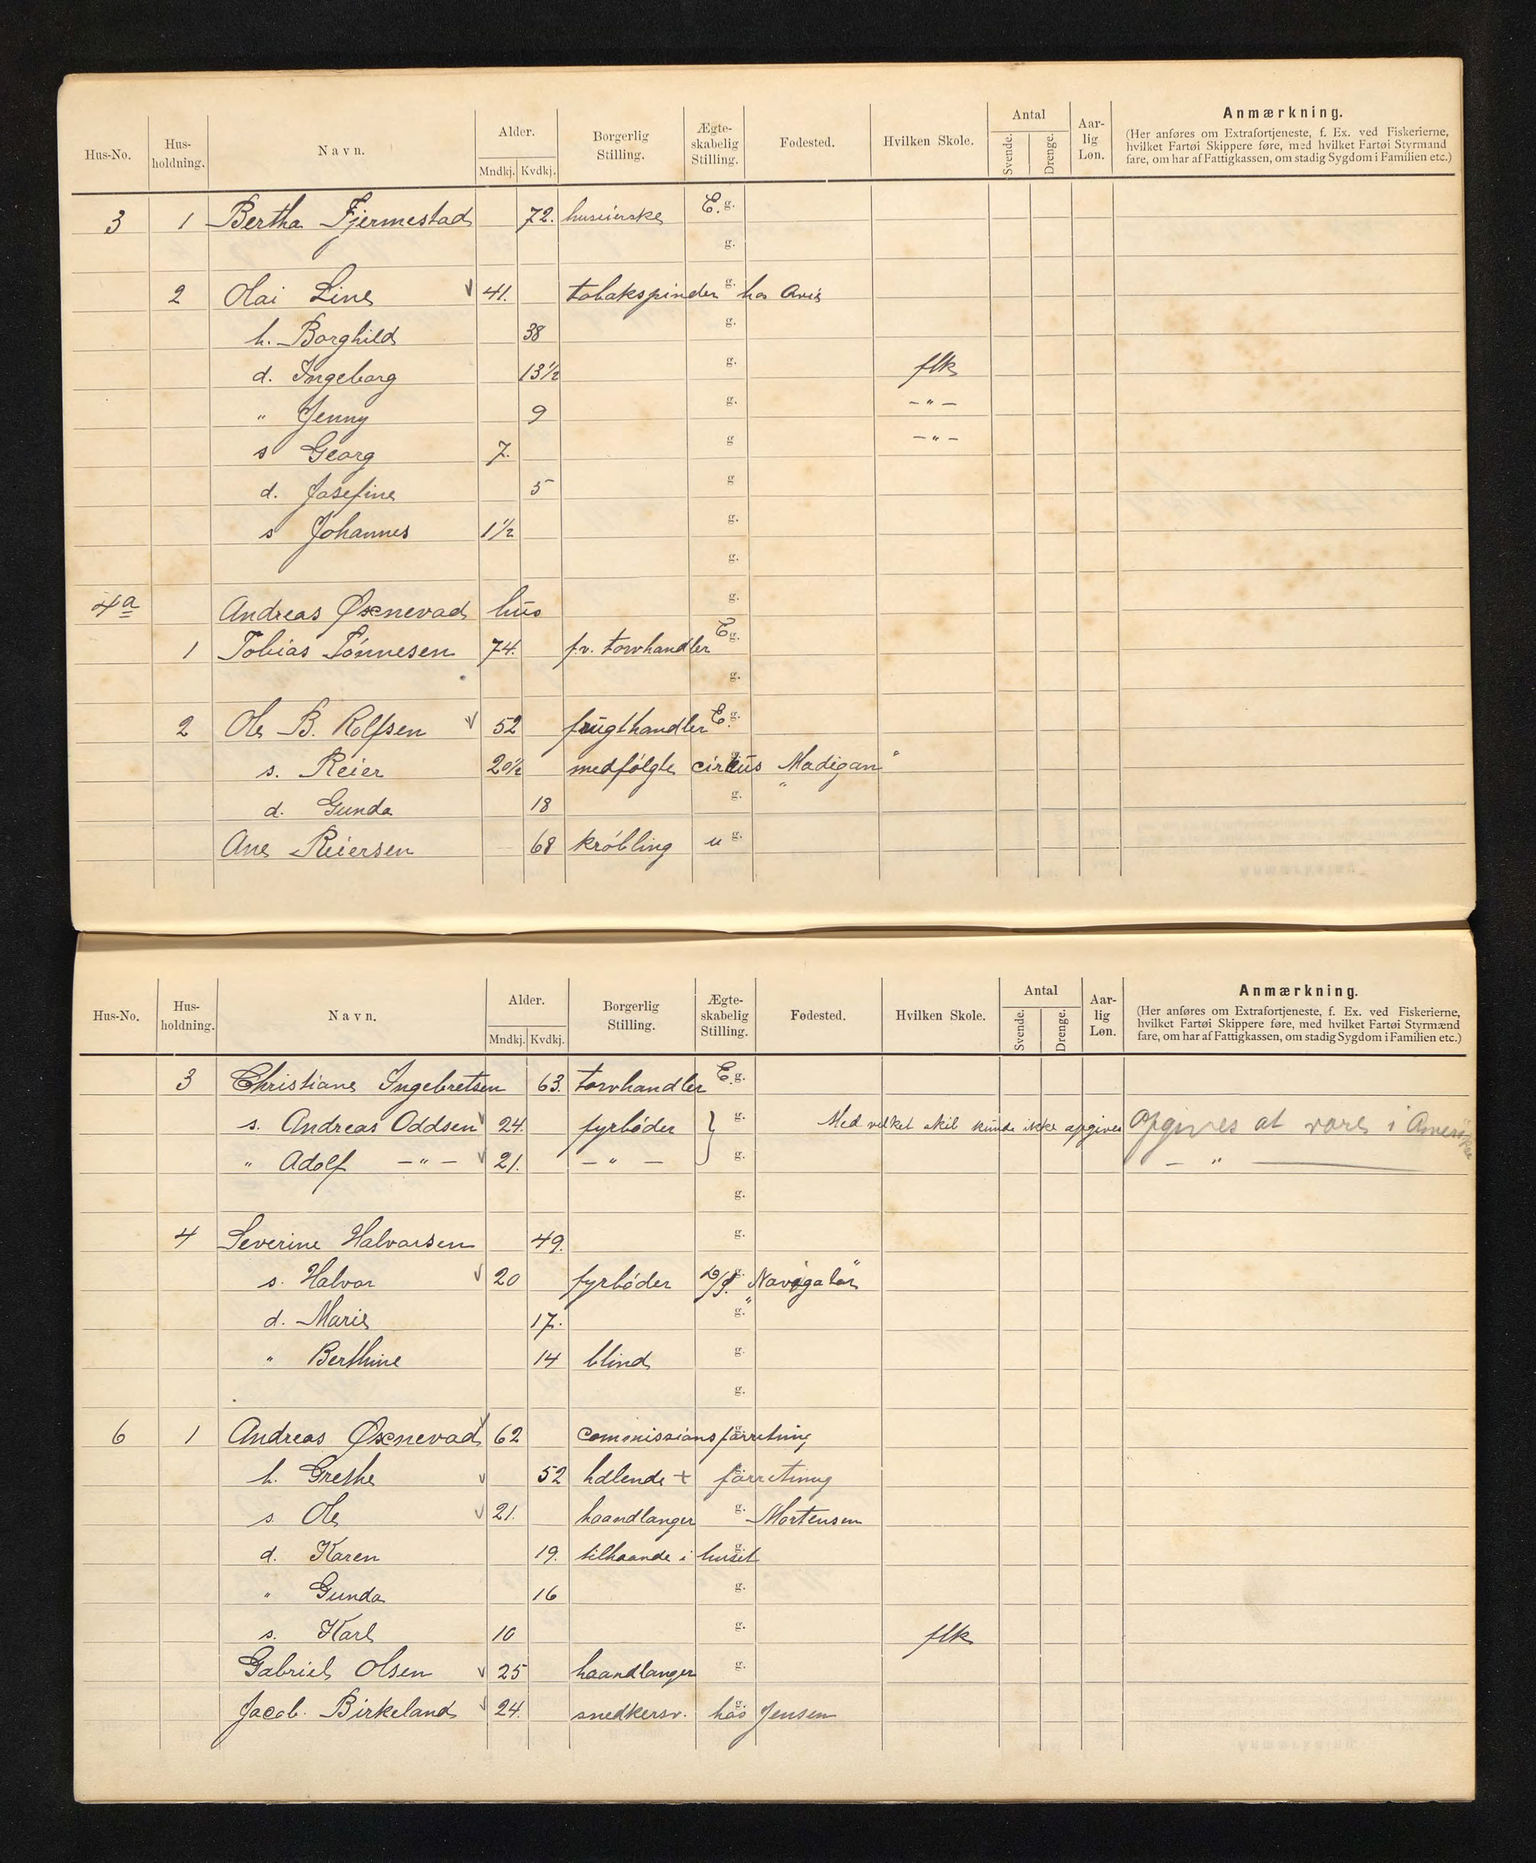 Hus-No. Hus-holdning. Navn. Alder. Mndkj. Kvdkj. Borgerlig Stilling. Ægte-skabelig Stilling. Fødested. Hvilken Skole. Antal Svende. Drenge. Aar-lig Løn. Anmærkning.
(Her anføres om Extrafortjeneste, f. Ex. ved Fiskerierne, hvilket Fartøi Skippere føre, med hvilket Fartøi Styrmand fare, om har af Fattigkassen, om stadig Sygdom i Familien etc.)
3 1 Bertha Fjermestad 72. huseierske E. g.
g.
2 Olai Line √ 41. tobakspinder g. hos Avis
h. Borghild 38 g.
d. Ingeborg 13½ g. flk
" Jenny 9 g. - " -
s Georg 7. g - " -
d. Josefine 5 g
s Johannes 1½ g.
g.
4a Andreas Øxnevad hus g.
1 Tobias Tønnesen 74. f.v. torvhandler E g.
g.
2 Ole B. Rolfsen √ 52 frugthandler E. g.
s. Reier 20½ medfølgte cirkus "Madigan"
d. Gunda 18 g.
Ane Reiersen 68 krøbling u g.
Hus-No. Hus-holdning. Navn. Alder. Mndkj. Kvdkj. Borgerlig Stilling. Ægte-skabelig Stilling. Fødested. Hvilken Skole. Antal Svende. Drenge. Aar-lig Løn. Anmærkning.
(Her anføres om Extrafortjeneste, f. Ex. ved Fiskerierne, hvilket Fartøi Skippere føre, med hvilket Fartøi Styrmænd fare, om har af Fattigkassen, om stadig Sygdom i Familien etc.)
3 Christiane Ingebretsen 63. torvhandler E. g.
s. Andreas Oddsen √ 24. fyrbøder } g. Med vilket skib kunde ikke opgives Opgives at være i Amerika
" Adolf - " - √ 21. - " - g. - " -
g.
4 Severine Halvorsen 49. g.
s. Halvor √ 20 fyrbøder D/S. g. "Navigatør"
d. Marie 17. g.
" Berthine 14 blind g.
g.
6 1 Andreas Øxnevad √ 62 commissionsforretning
h. Grethe √ 52 hdlende + forretning
s. Ole √ 21. haandlanger g. Mortensen
d. Karen 19. tilhaande i huset g.
" Gunda 16 g.
s. Karl 10 g. flk
Gabriel Olsen √ 25 haandlanger g.
Jacob Birkeland √ 24. snedkersv. hos g. Jensen